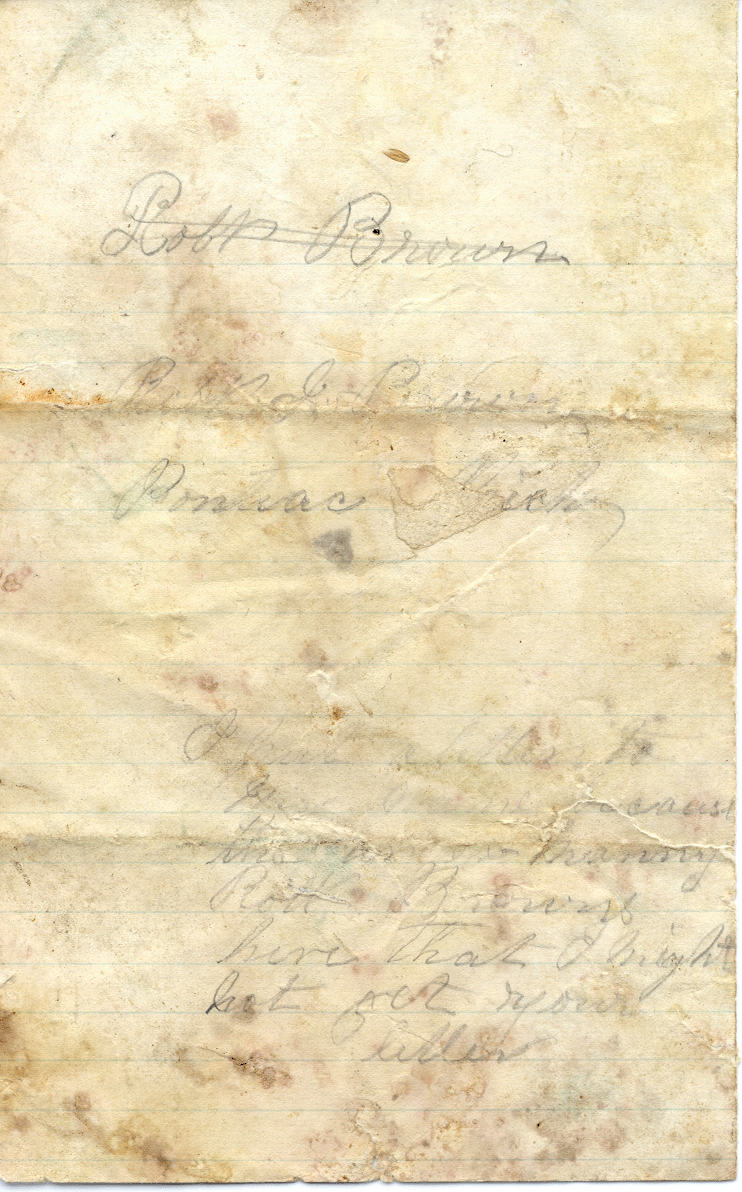 Robt Brown
Robt J. Brown
Pontiac Mich
I have a letter to
because
the are so manny
Robt Browns
here that I might
not get your
letter